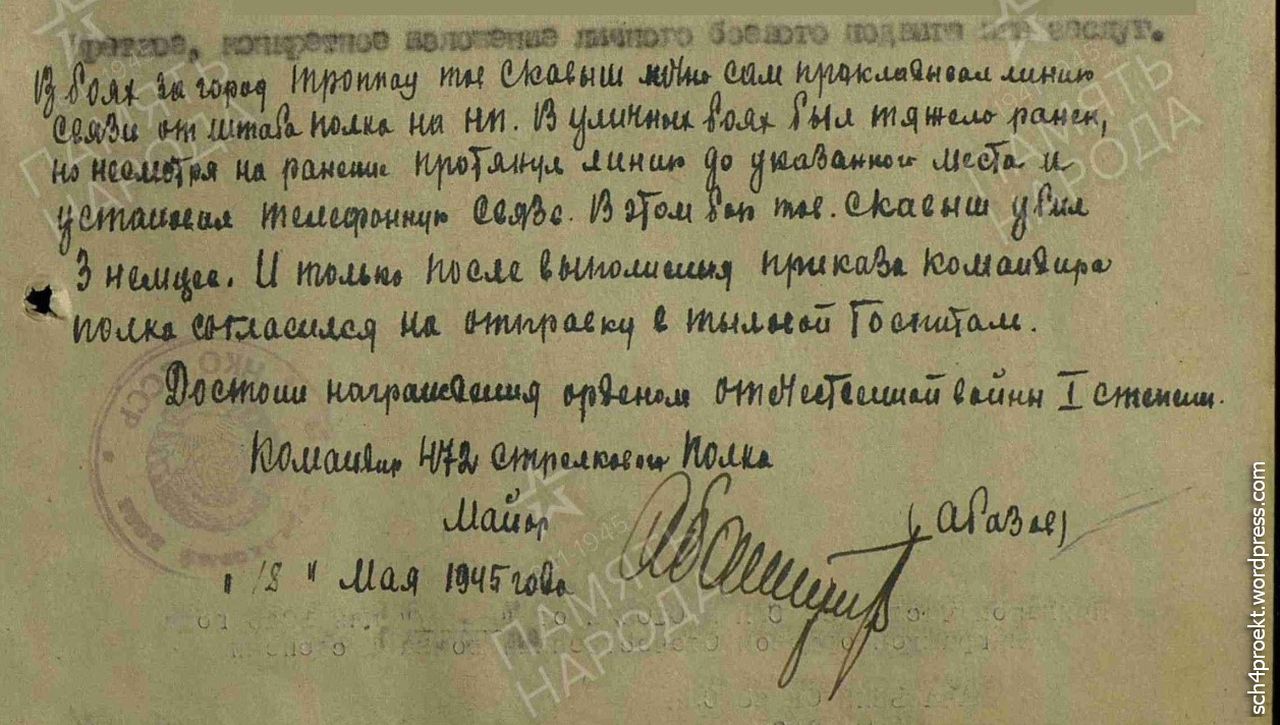 Краткое, конкретное изложение личного боевого подвига или заслуг.
В боях за город Троппау тов Скавыш лично сам прокладывал линию
связи от штаба полка на НП. В уличных боях был тяжело ранен,
но несмотря на ранение протянул линию до указанного места и
установил телефонную связь. В этом бою тов. Скавыш убил
3 немцев. И только после выполнения приказа командира
полка согласился на отправку в тыловой Госпиталь.
Достоин награждения орденом отечественной войны I степени.
Командир 472 стрелкового полка
Майор (Абазов)
"18" Мая 1945 года
ПАМЯТЬ НАРОДА
1941-1945
sch4proekt.wordpress.com